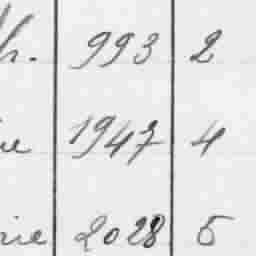 h. 993 2
ue 1947 4
rie 2028 5